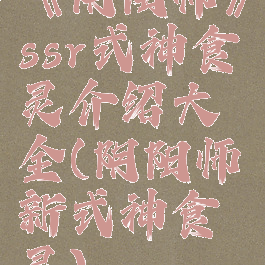 《阴阳师》
ssr式神食
灵介绍大
全(阴阳师
新式神食
灵)